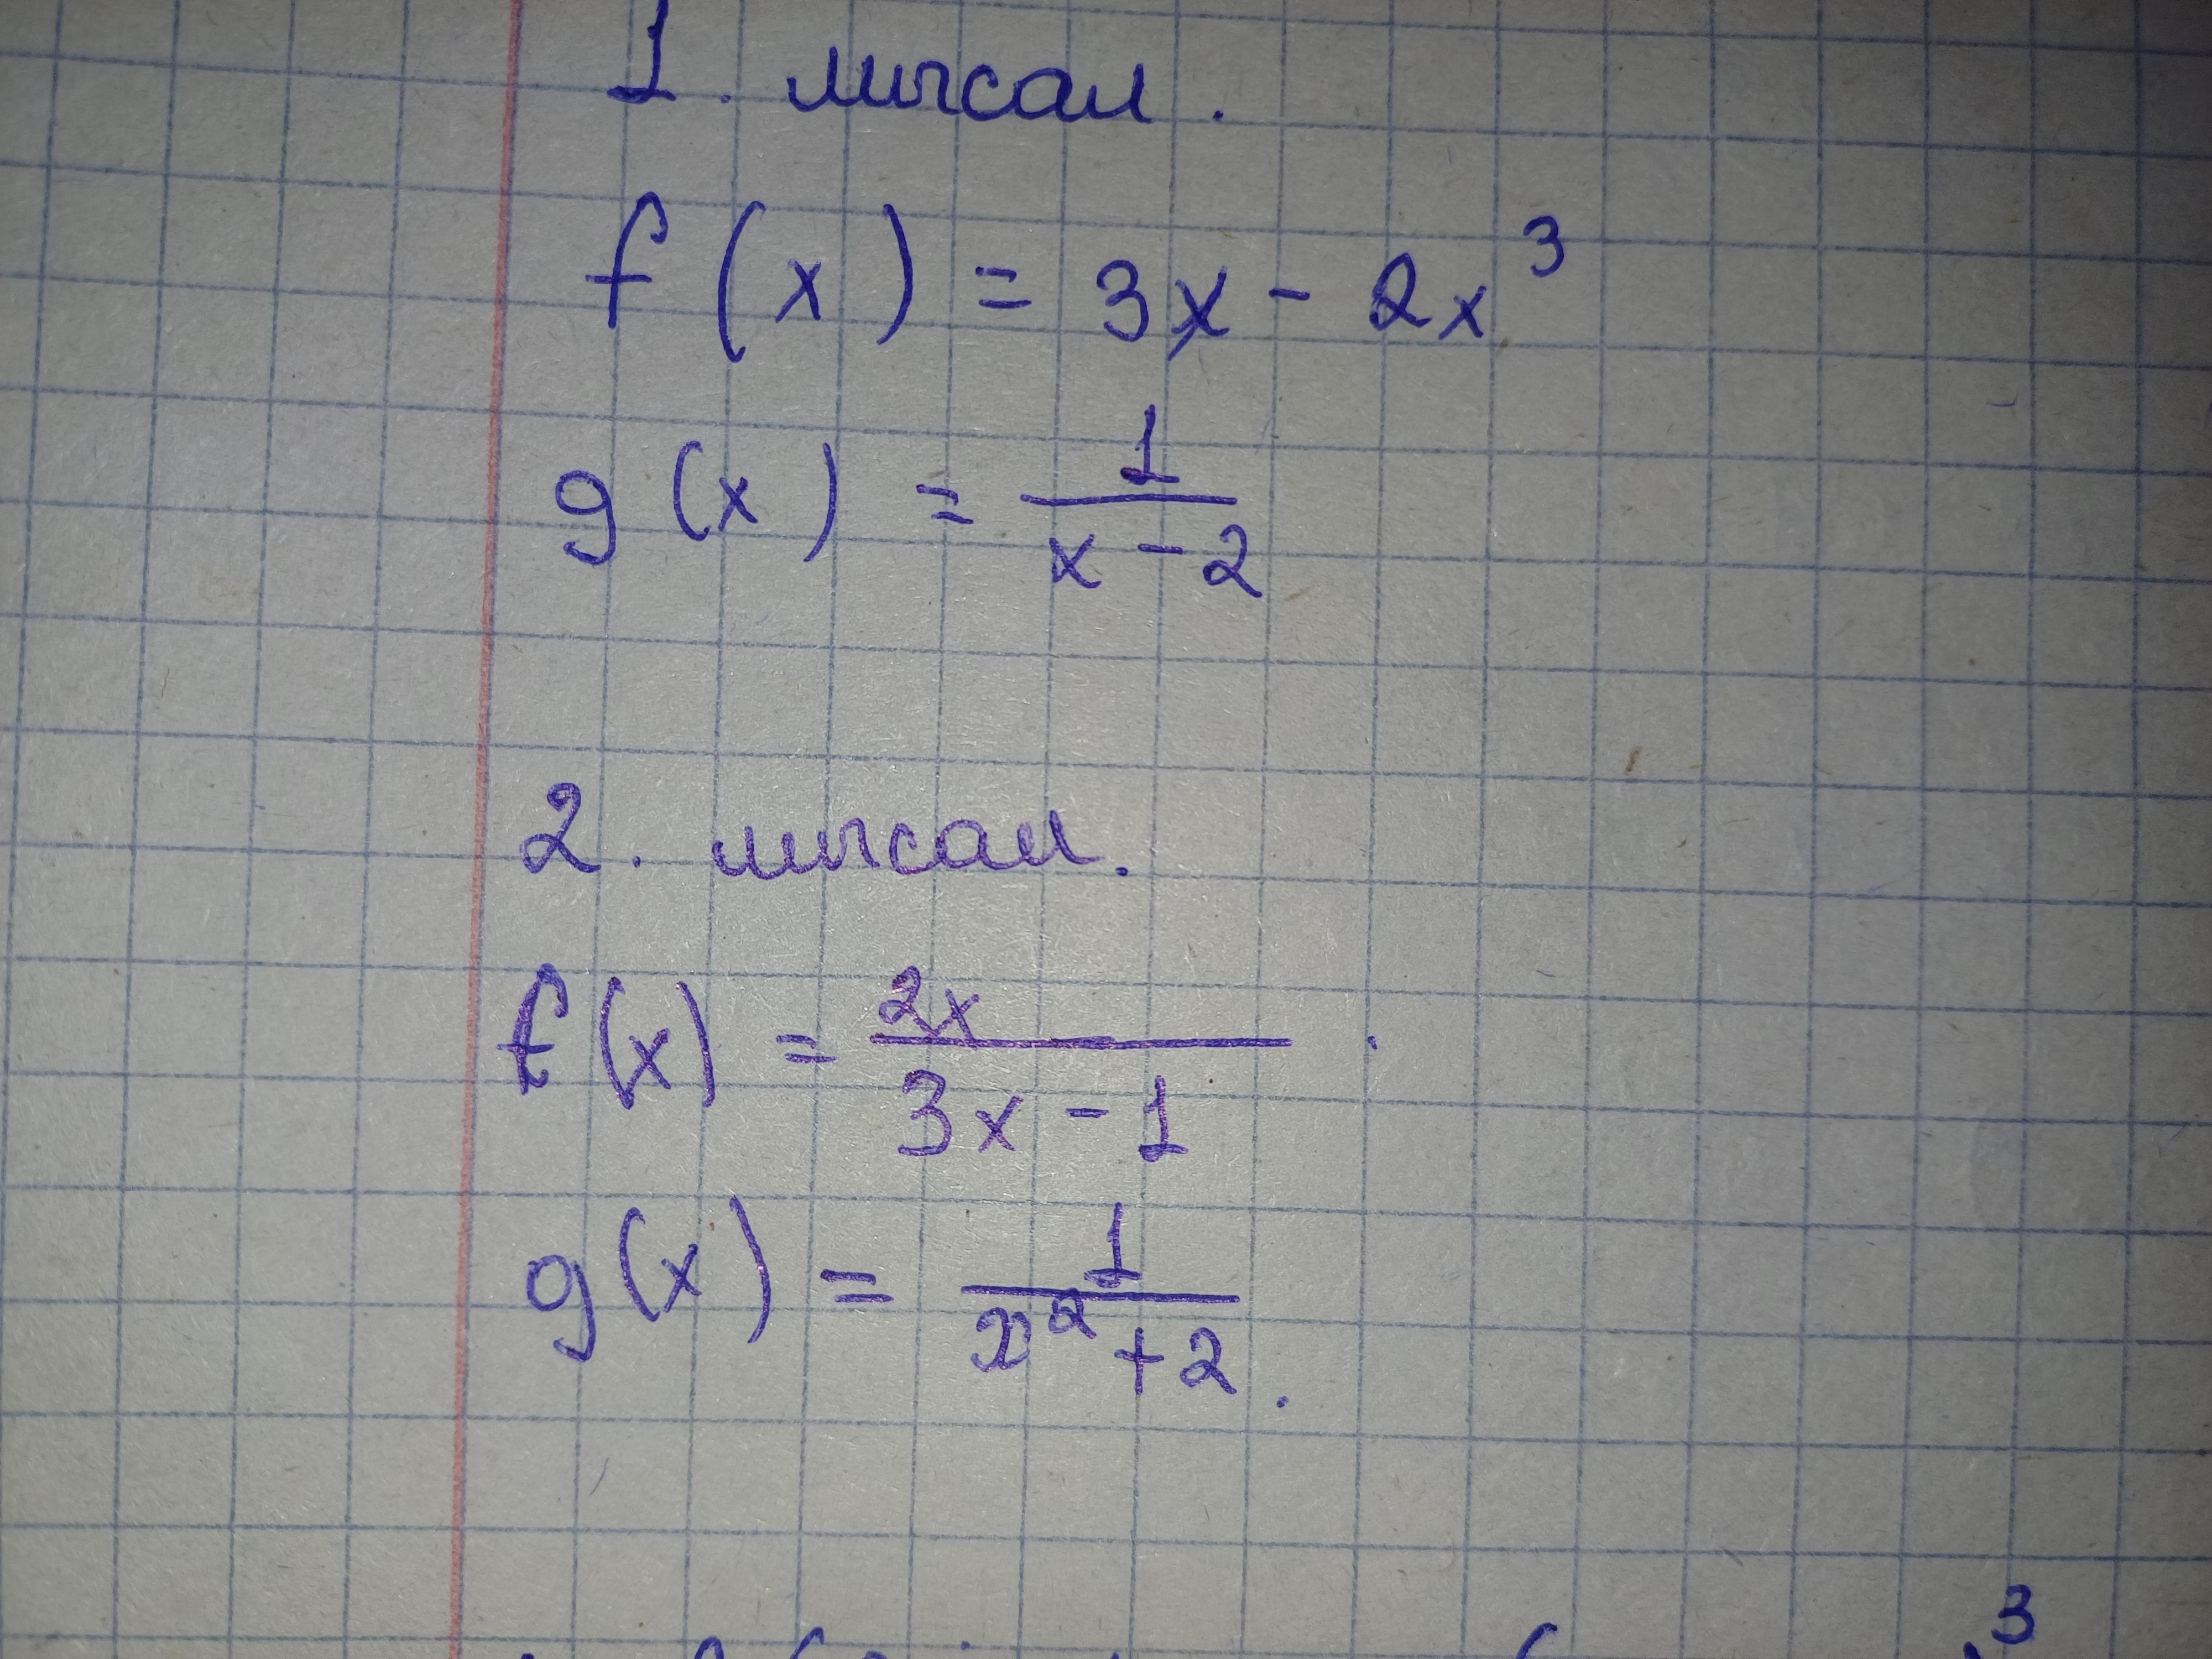 1. мысал.
f(x) = 3x - 2x³
g(x) = 1/(x - 2)
2. мысал.
f(x) = 2x/(3x - 1).
g(x) = 1/(x² + 2).